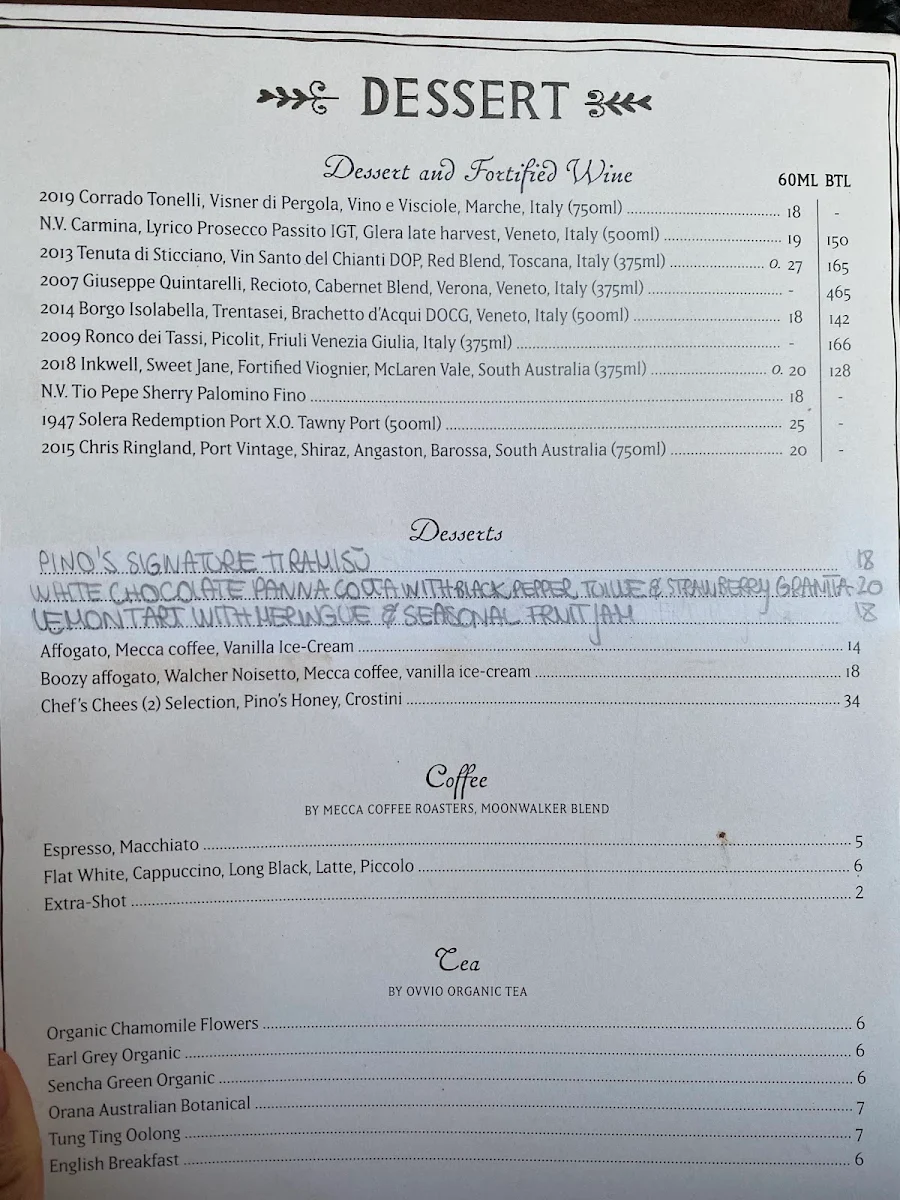 DESSERT
Dessert and Fortified Wine
60ML BTL
2019 Corrado Tonelli, Visner di Pergola, Vino e Visciole, Marche, Italy (750ml) 18 -
N.V. Carmina, Lyrico Prosecco Passito IGT, Glera late harvest, Veneto, Italy (500ml) 19 150
2013 Tenuta di Sticciano, Vin Santo del Chianti DOP, Red Blend, Toscana, Italy (375ml) O. 27 165
2007 Giuseppe Quintarelli, Recioto, Cabernet Blend, Verona, Veneto, Italy (375ml) - 465
2014 Borgo Isolabella, Trentasei, Brachetto d'Acqui DOCG, Veneto, Italy (500ml) 18 142
2009 Ronco dei Tassi, Picolit, Friuli Venezia Giulia, Italy (375ml) - 166
2018 Inkwell, Sweet Jane, Fortified Viognier, McLaren Vale, South Australia (375ml) O. 20 128
N.V. Tio Pepe Sherry Palomino Fino 18 -
1947 Solera Redemption Port X.O. Tawny Port (500ml) 25 -
2015 Chris Ringland, Port Vintage, Shiraz, Angaston, Barossa, South Australia (750ml) 20 -
Desserts
PINO'S SIGNATURE TIRAMISÙ 18
WHITE CHOCOLATE PANNA COTTA WITH BLACK PEPPER TUILLE & STRAWBERRY GRANITA 20
LEMON TART WITH MERINGUE & SEASONAL FRUIT JAM 18
Affogato, Mecca coffee, Vanilla Ice-Cream 14
Boozy affogato, Walcher Noisetto, Mecca coffee, vanilla ice-cream 18
Chef's Chees (2) Selection, Pino's Honey, Crostini 34
Coffee
BY MECCA COFFEE ROASTERS, MOONWALKER BLEND
Espresso, Macchiato 5
Flat White, Cappuccino, Long Black, Latte, Piccolo 6
Extra-Shot 2
Tea
BY OVVIO ORGANIC TEA
Organic Chamomile Flowers 6
Earl Grey Organic 6
Sencha Green Organic 6
Orana Australian Botanical 7
Tung Ting Oolong 7
English Breakfast 6